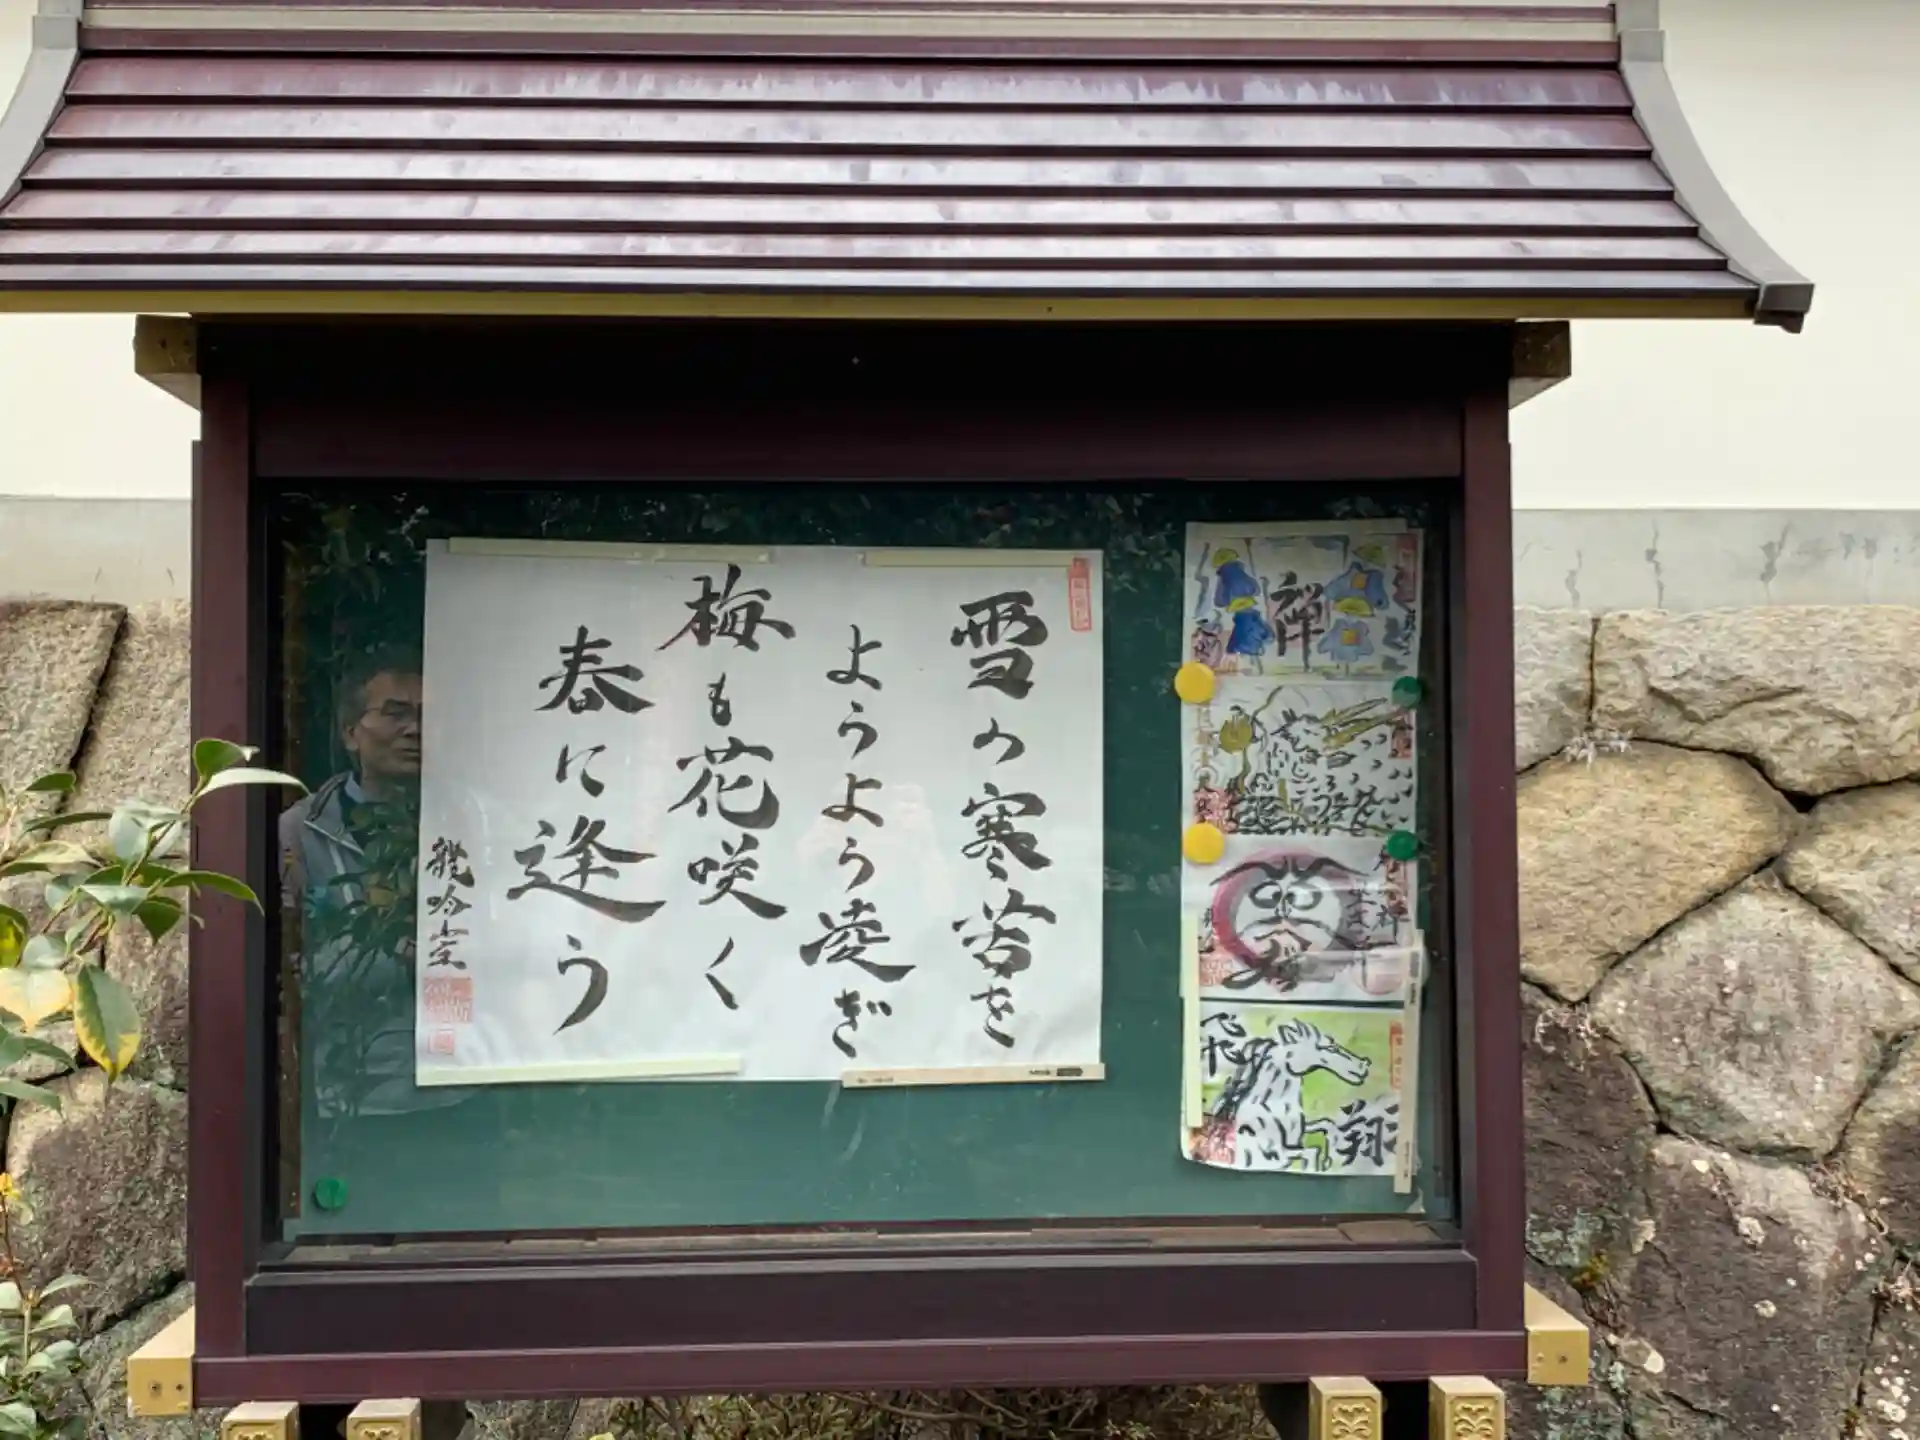 雪の寒苦を
ようよう凌ぎ
梅も花咲く
春に逢う
龍吟宗
禅
飛翔